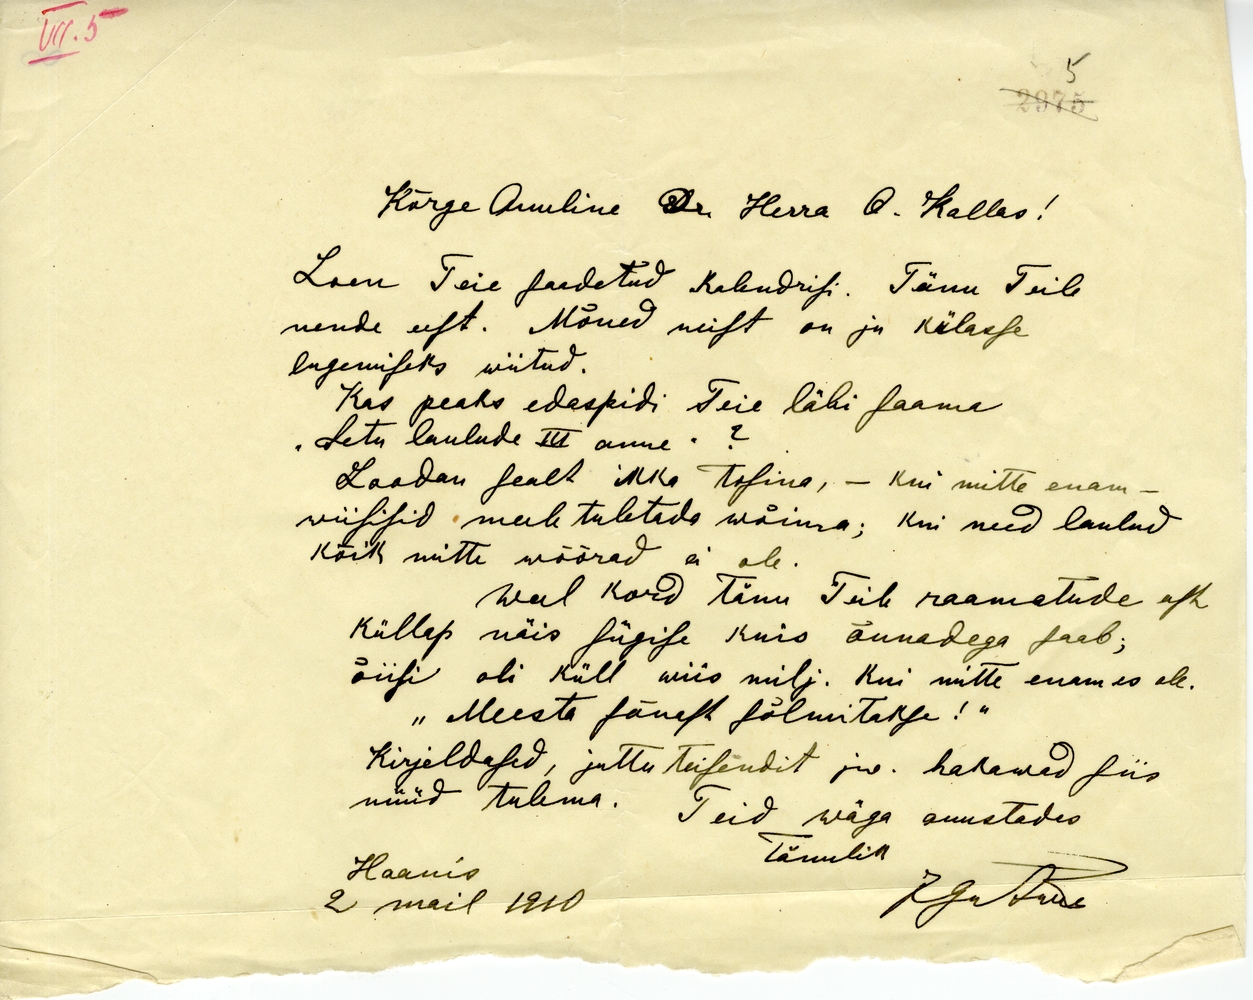 VII. 5
5
2975
Kõrge Auuline Dr. Herra O. Kallas!
Loen Teie saadetud kalendrisi. Tänu Teile
nende eest. Mõned neist on ju külasse
lugemiseks wiitud.
Kas peaks edaspidi Teie läbi saama
„Setu laulude III anne" ?
Loodan sealt ikka tosina, — kui mitte enam —
wiisisid meele tuletada wõiwa; kui need laulud
kõik mitte wõõrad ei ole.
Weel kord Tänu Teile raamatude eest
Küllap näis sügise kuis õunadega saab;
õiisi oli küll wiis milj. kui mitte enam es ole.
„Meestä sõnest sõlmitakse!"
Kirjeldused, juttu teisendit jw. hakawad siis
nüüd tulema.
Teid wäga auustades
Tänulik
Haanis
2 mail 1910